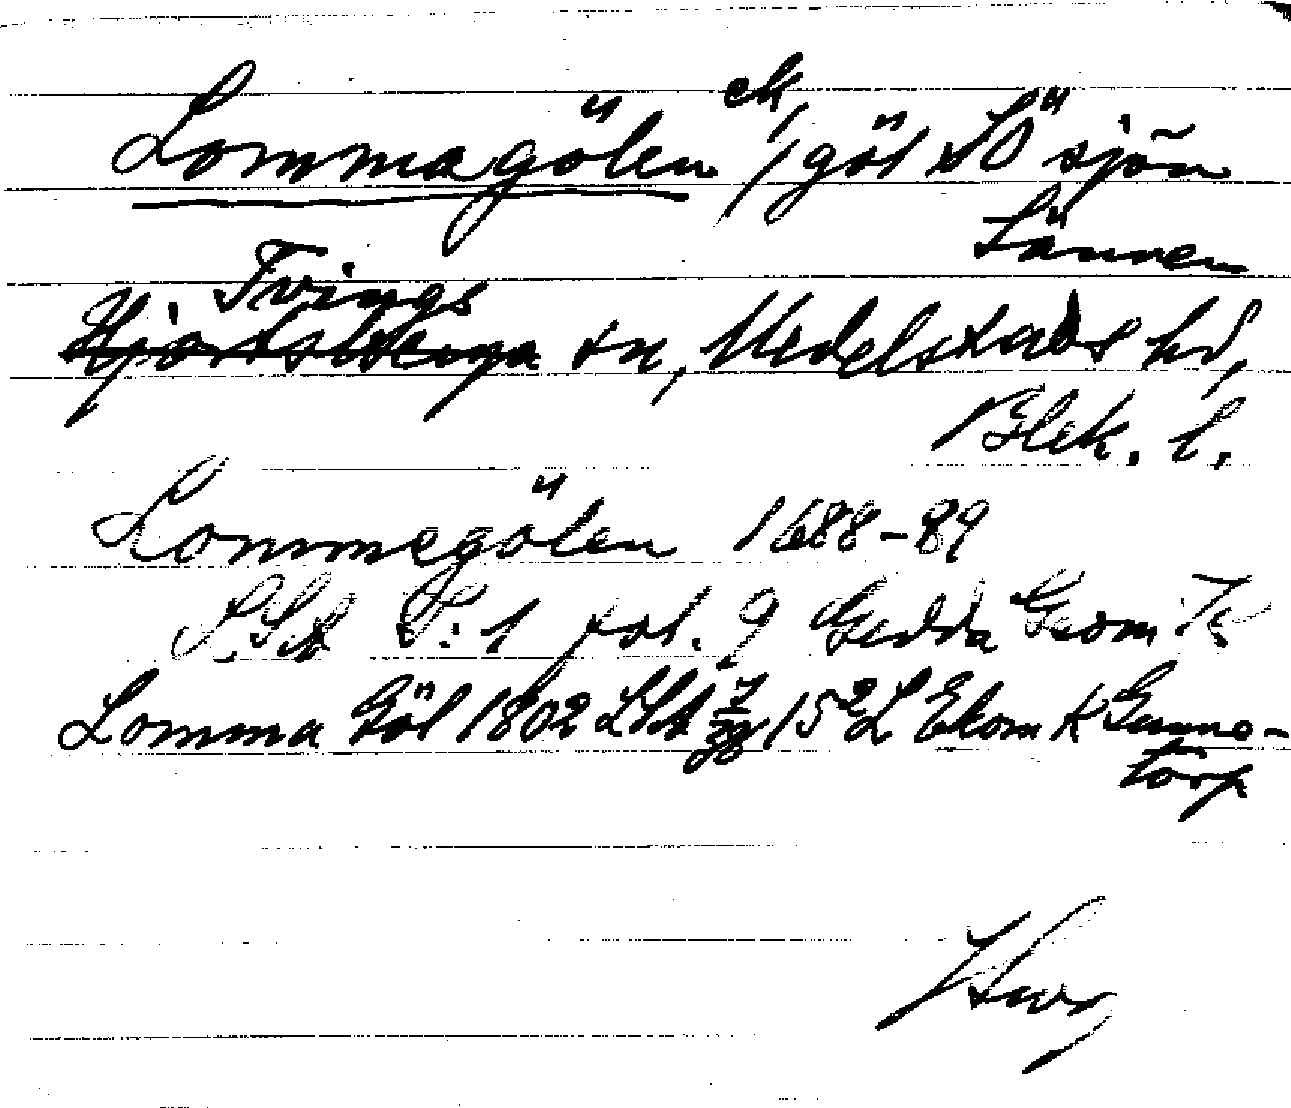 Lommagölen ek, göl SÖ sjön
Sännen
Tvings
Hjortsberga sn, Medelstads hd,
Blek. l.
Lommegölen 1688-89
LSA fol. 9 Gedda Geom
Lomma Göl 1802 LSA 15 L Ekom K Gunne-
torp